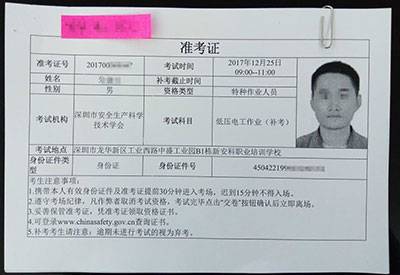 准考证
准考证号 201700 考试时间 2017年12月25日
09:00--11:00
姓名 补考截止时间
性别 男 资格类型 特种作业人员
考试机构 深圳市安全生产科学技术学会 考试科目 低压电工作业（补考）
考试地点 深圳市龙华新区工业西路中盛工业园B1栋新安科职业培训学校
身份证件类型 身份证 身份证件号 450422199
考生注意事项：
1.携带本人有效身份证件及准考证提前30分钟进入考场，迟到15分钟不得入场。
2.遵守考场纪律，凡作弊者取消考试资格，考试完毕点击“交卷”按钮确认后立即离场。
3.妥善保管准考证，凭准考证领取资格证书。
4.可登录www.chinasafety.gov.cn查询证书。
5.补考考生请注意：逾期未进行考试的视为弃考。